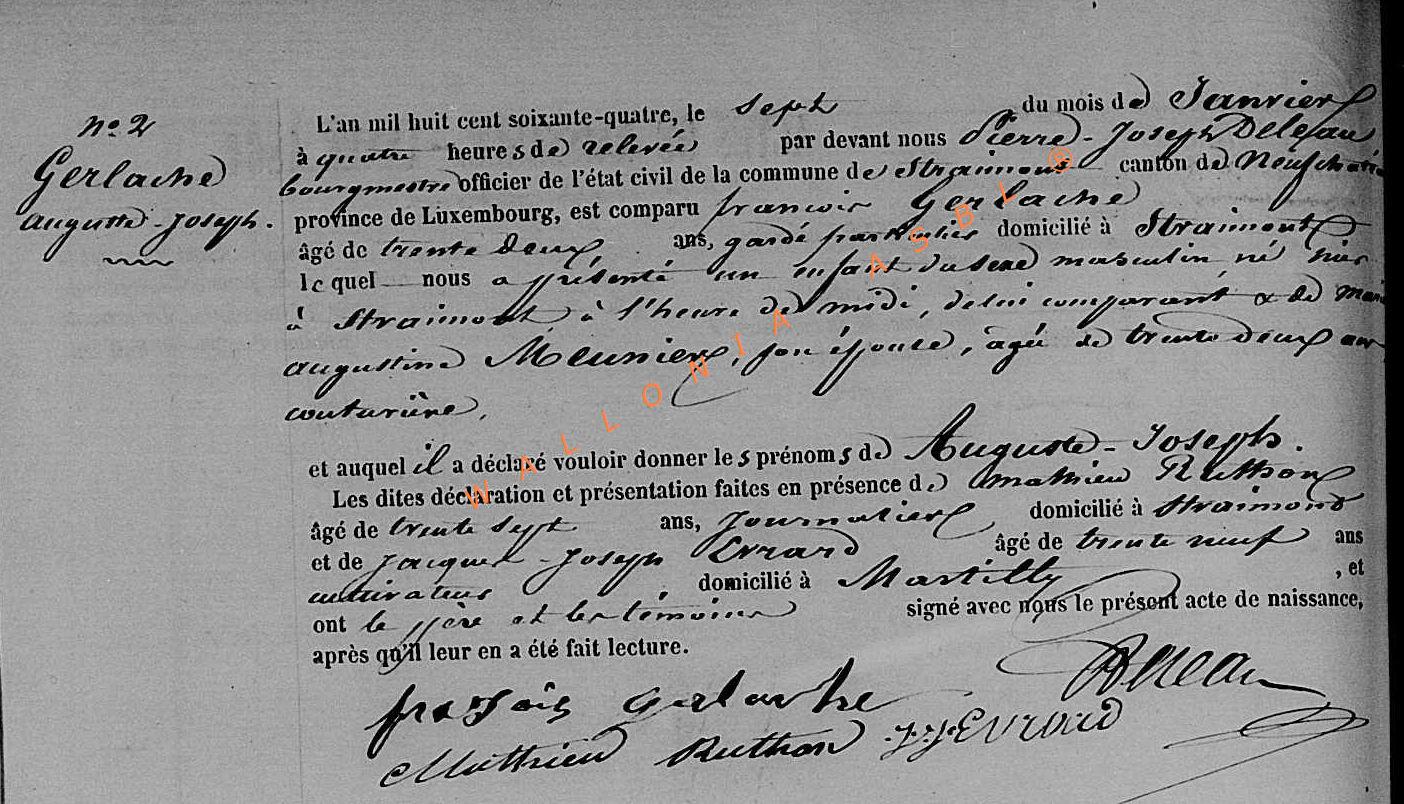 No. 2
Gerlache
Auguste-Joseph.
L'an mil huit cent soixante-quatre, le sept du mois de Janvier
à quatre heures de relevée par devant nous Pierre-Joseph Deleau
bourgmestre officier de l'état civil de la commune de Straimont canton de Neufchâteau
province de Luxembourg, est comparu françois Gerlache
âgé de trente deux ans, garde particulier domicilié à Straimont
lequel nous a présenté un enfant du sexe masculin, né hier
à Straimont, à l'heure de midi, de lui comparant & de Marie
augustine Meunier, son épouse, agée de trente deux ans
couturière,
et auquel il a déclaré vouloir donner les prénoms de Auguste-Joseph.
Les dites déclaration et présentation faites en présence de Mathieu Ruthon
âgé de trente sept ans, Journalier domicilié à Straimond
et de Jacques-Joseph Evrard âgé de trente neuf ans
cultivateur domicilié à Martilly, et
ont le père et les témoins signé avec nous le présent acte de naissance,
après qu'il leur en a été fait lecture.
fransois gerlache
Mathieu Ruthon J.J. Evrard
WALLONIA ASBL ®